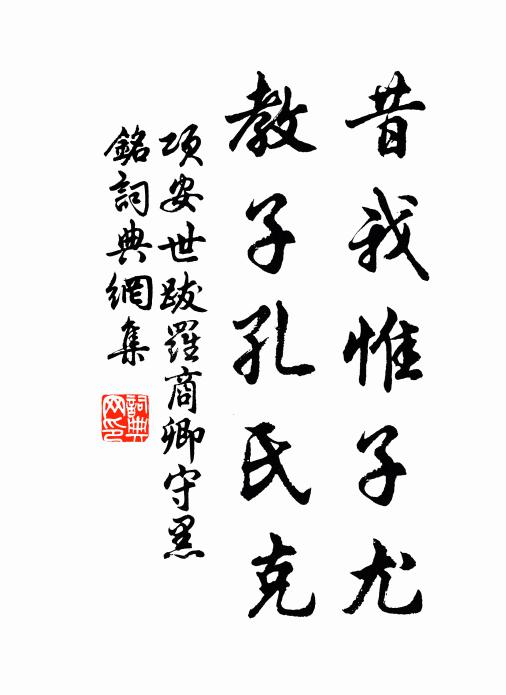 昔我惟子尤
教子孔氏克
項安世跋羅商卿守黑
銘詞典網集
詞典网印